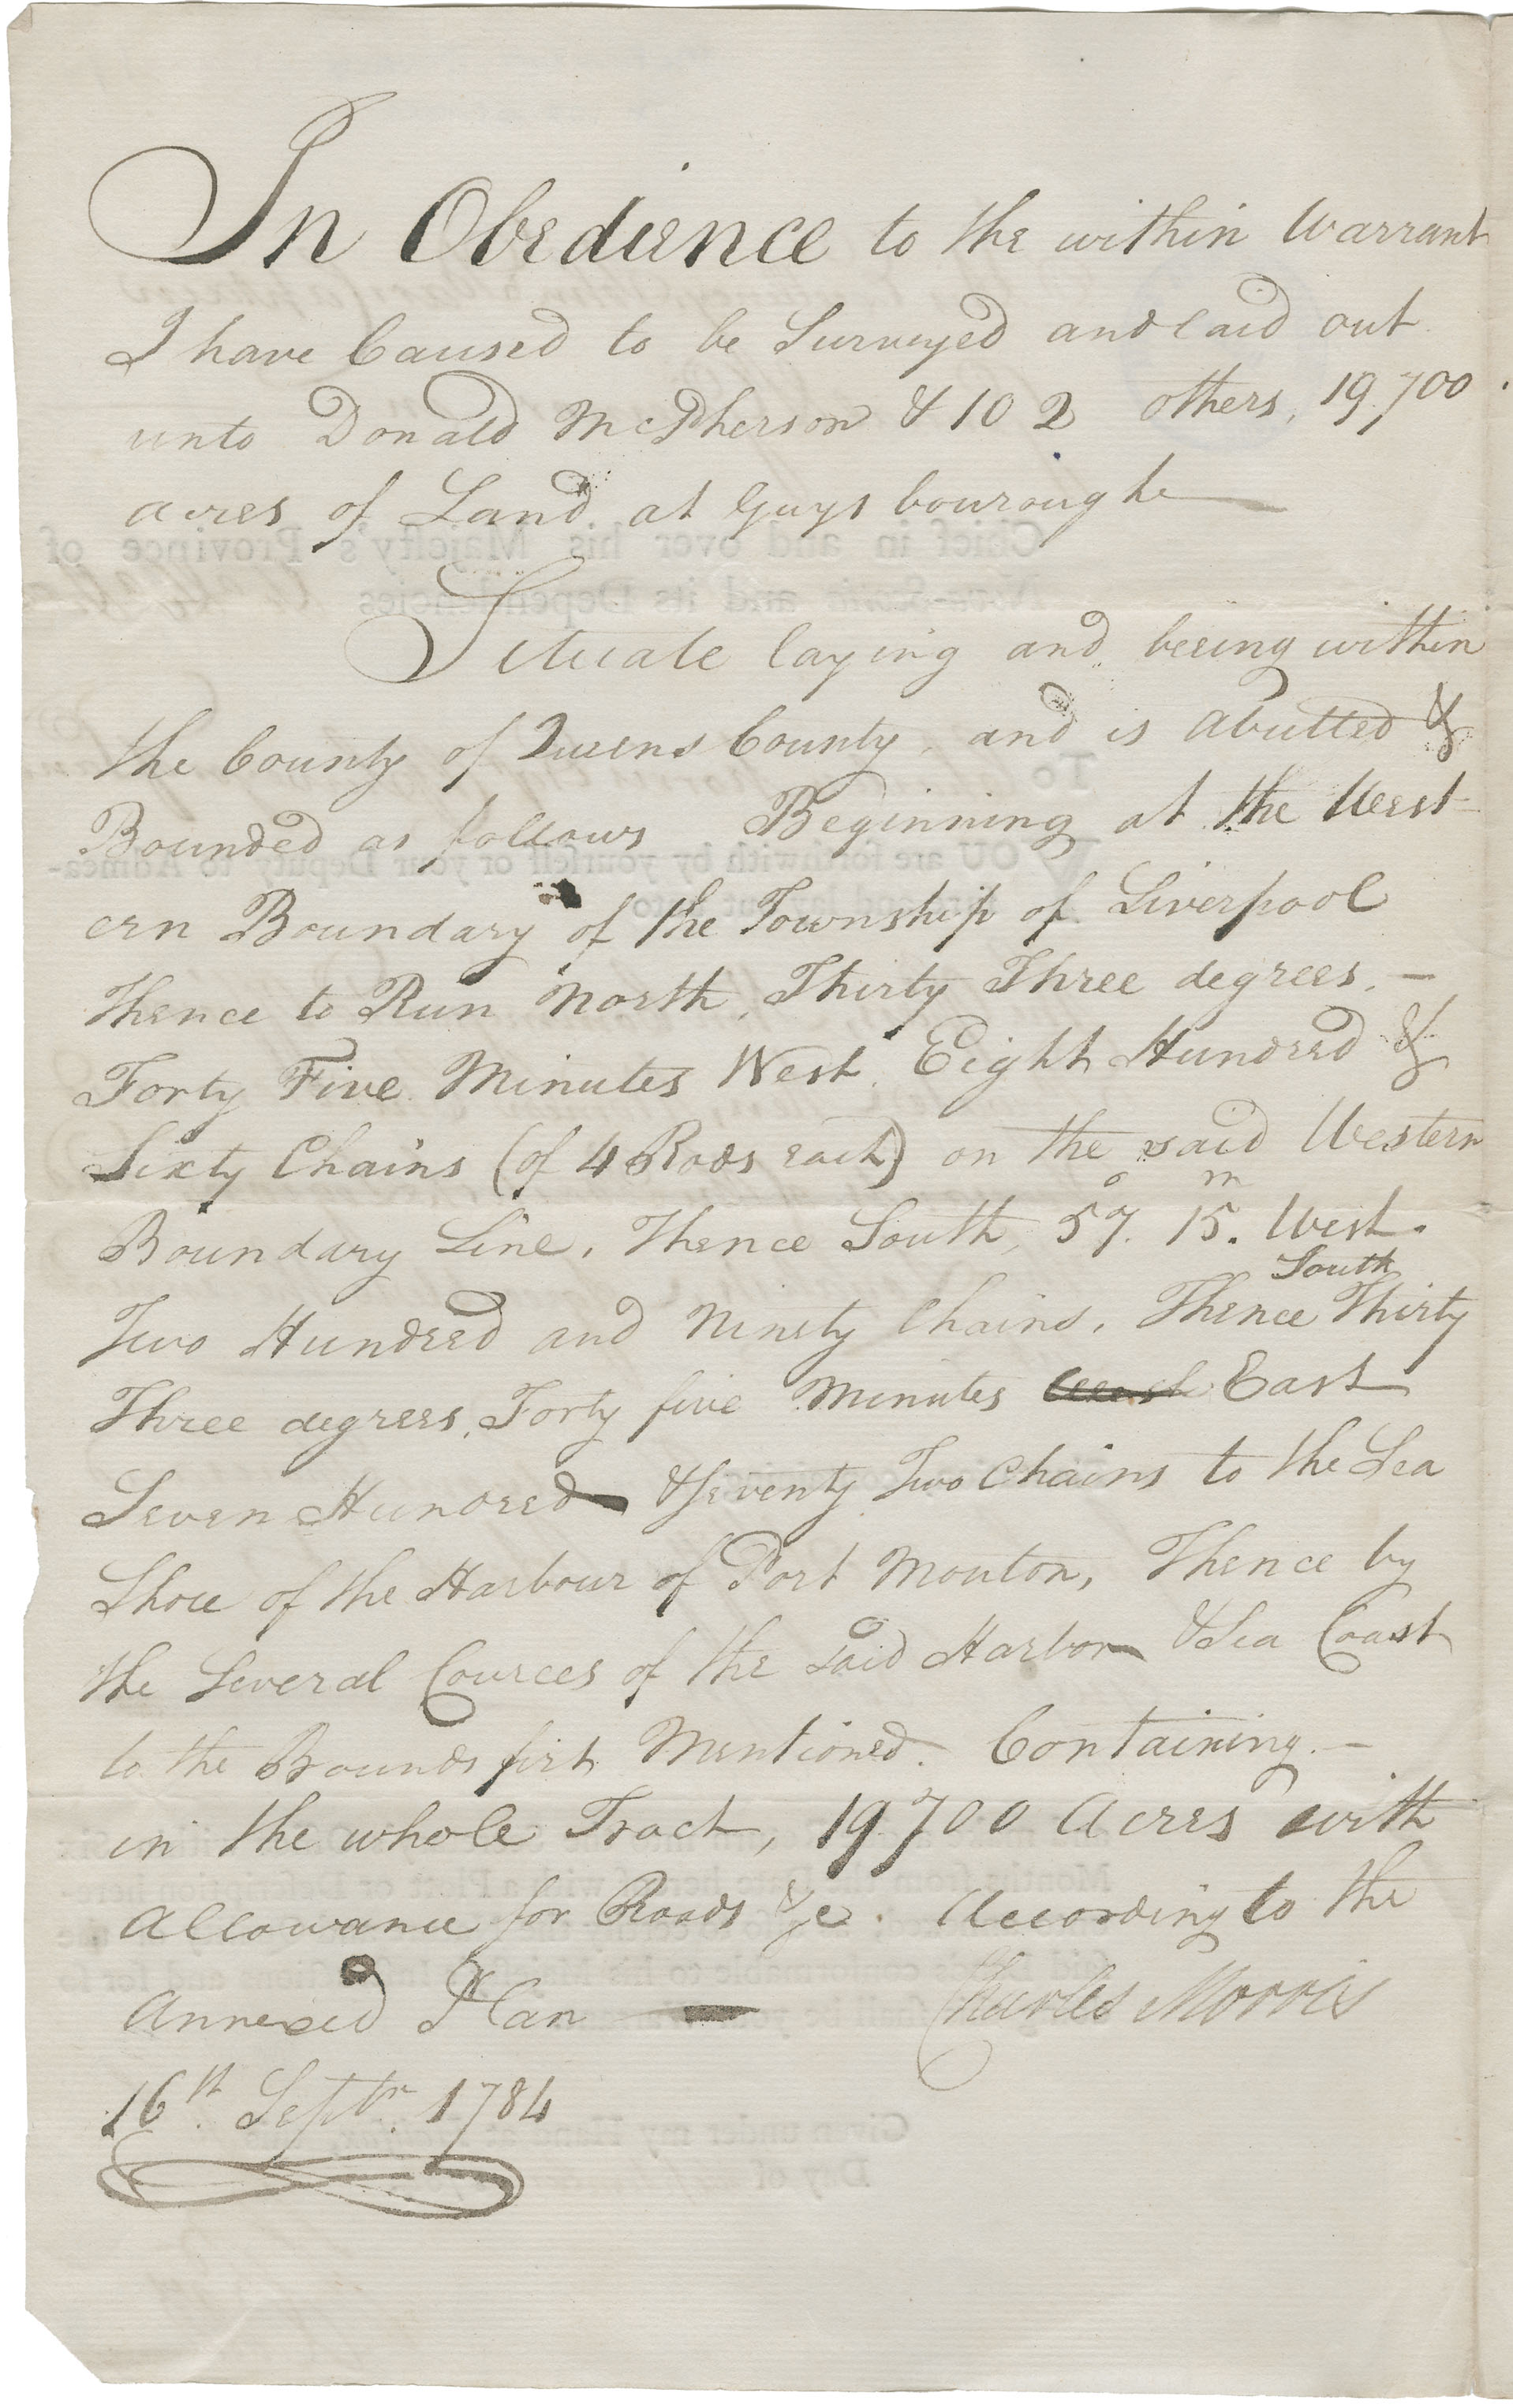 In Obedience to the within Warrant
I have Caused to be Surveyed and laid out
unto Donald McPherson & 102 others, 19,700
acres of Land at Guysbouroughe
Situate laying and beeing within
the County of Queens County, and is abutted &
Bounded as follows Beginning at the West
ern Boundary of the Township of Liverpool
Thence to Run North, Thirty Three degrees,
Forty Five Minutes West, Eight Hundred &
Sixty Chains (of 4 Rods each) on the said Western
Boundary Line, Thence South, 57° 15m West.
Two Hundred and Ninety Chains, Thence South Thirty
Three degrees, Forty five Minutes West East
Seven Hundred & Seventy Two Chains to the Sea
Shore of the Harbour of Port Mouton, Thence by
the Several Cources of the said Harbor & Sea Coast
to the Bounds first Mentioned. Containing.
in the whole Tract, 19700 Acres with
allowance for Roads &c. According to the
annexed Plan — Charles Morris
16th. Septr. 1784